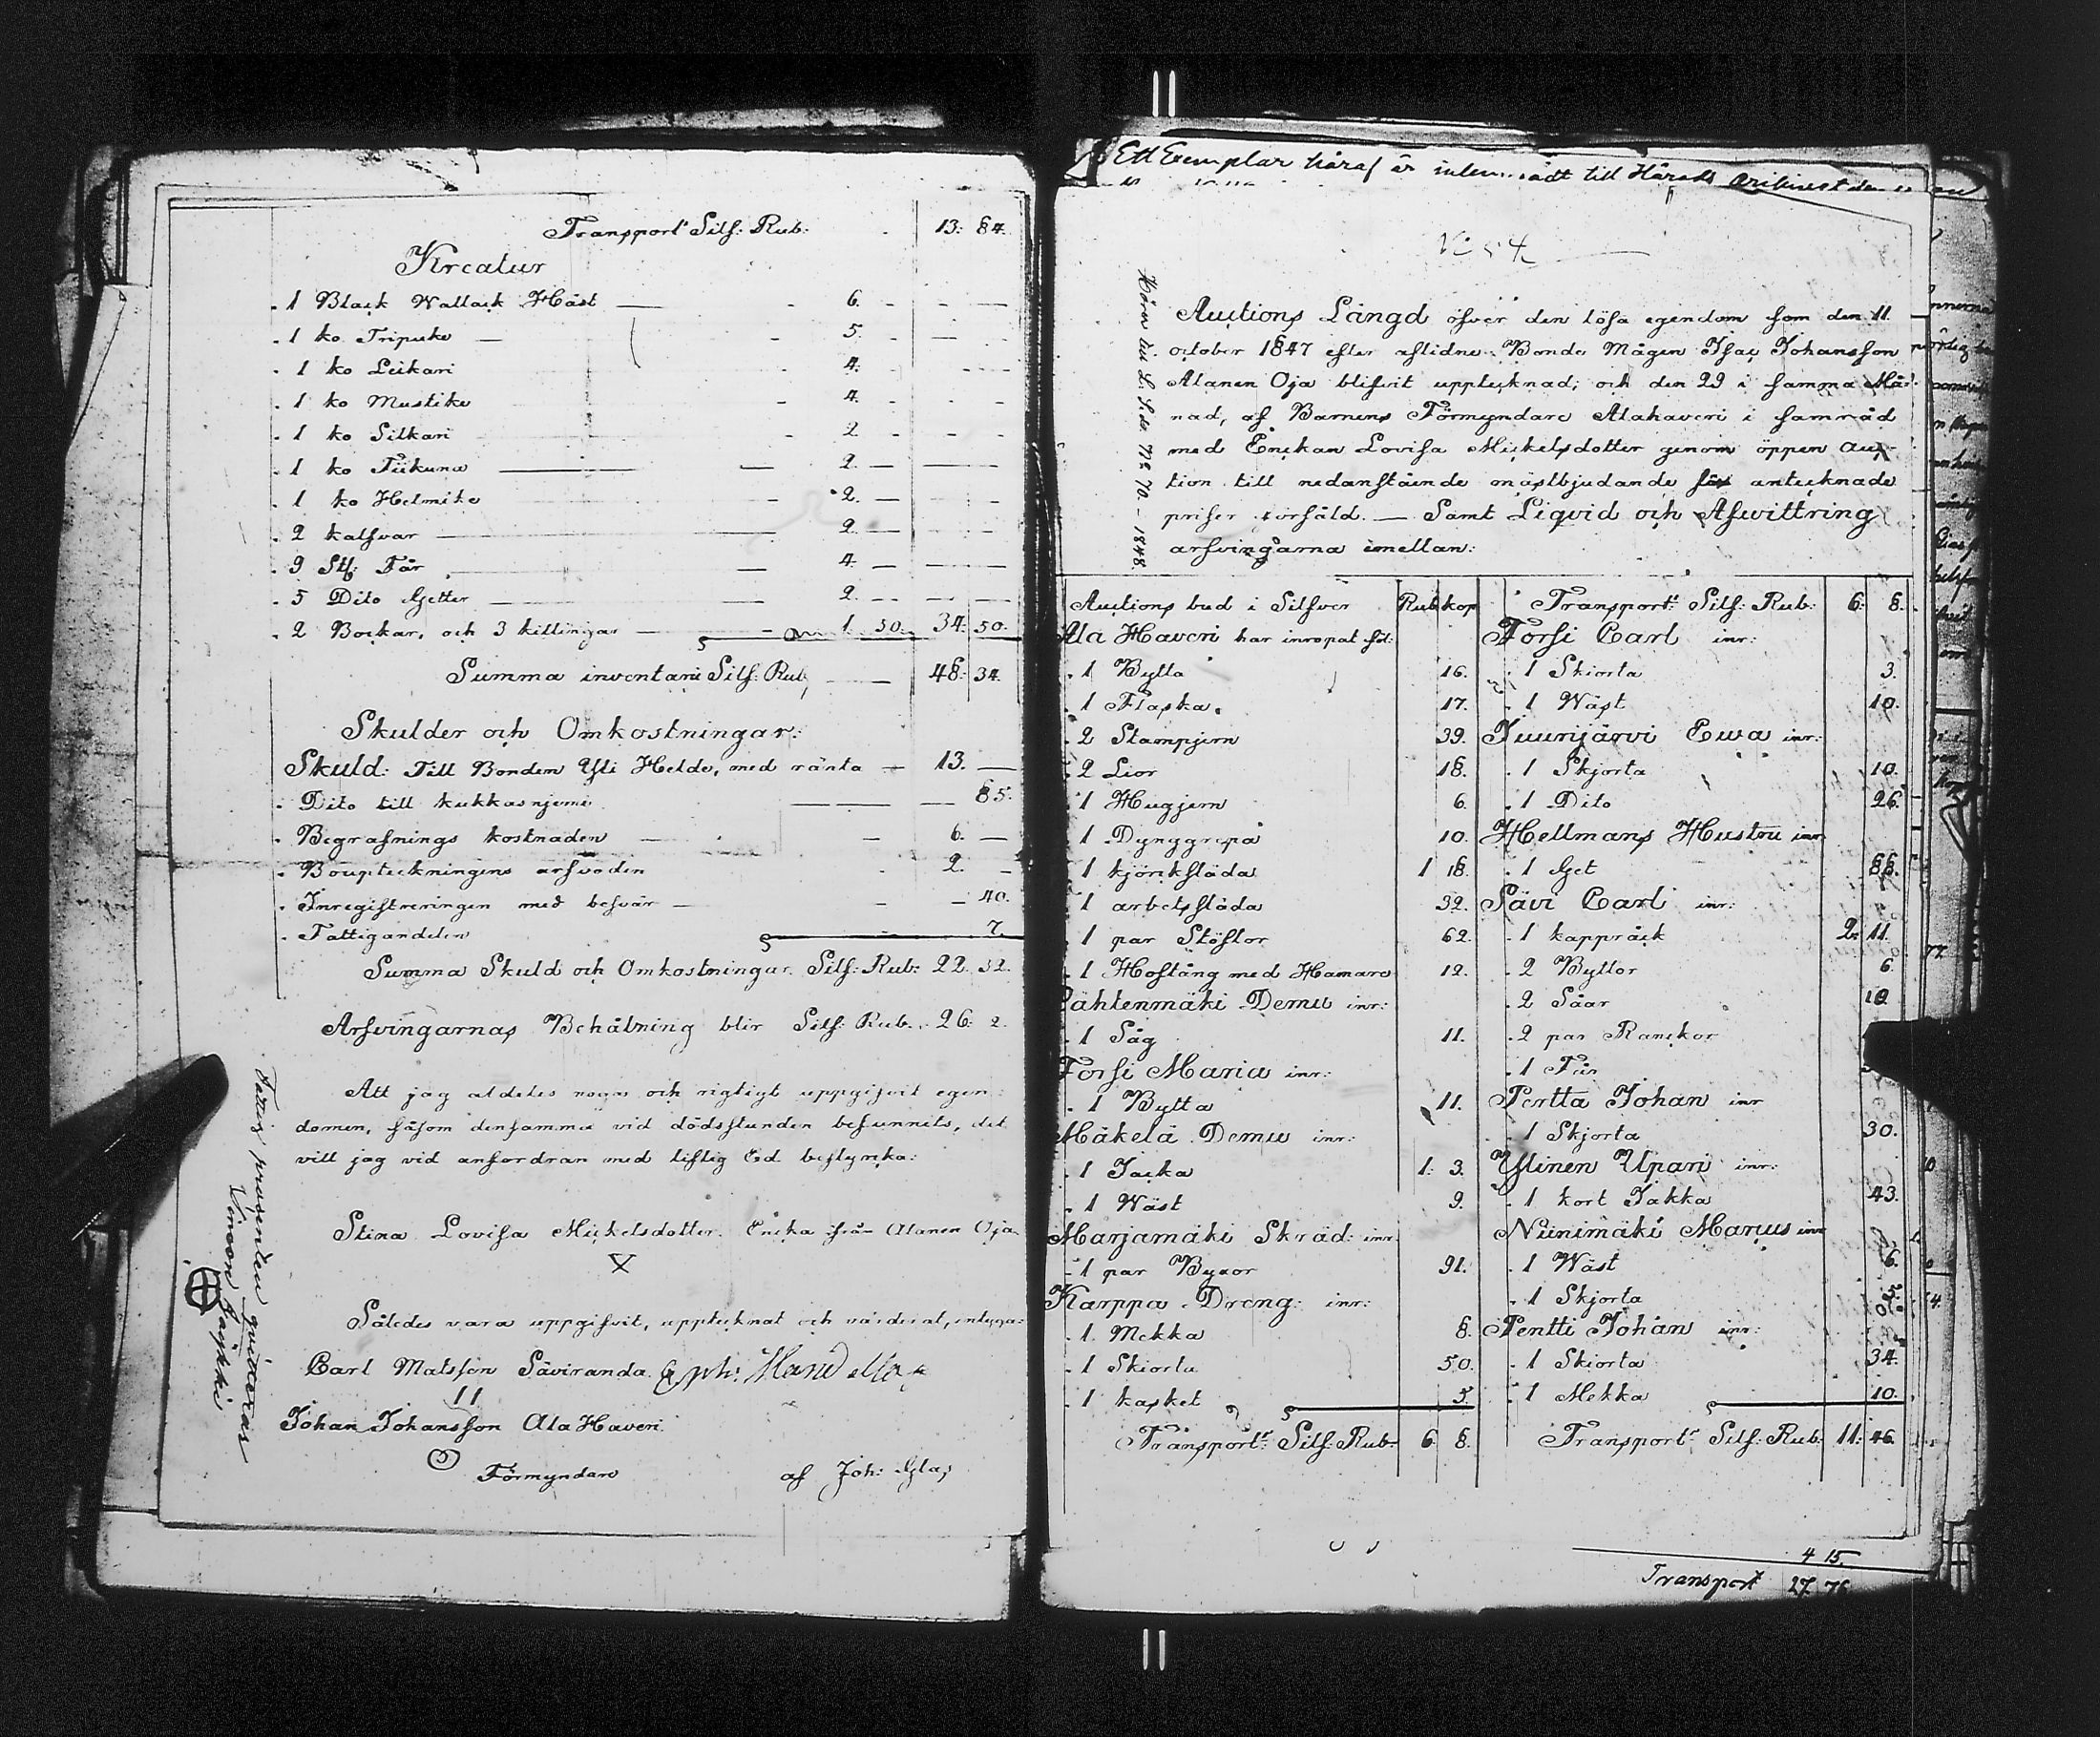 Transport Silf: Rub: 13: 84.
Kreatur
1 Black Wallack Häst 6.
1 ko Tripuke 5.
1 ko Leikari 4.
1 ko Mustike 4.
1 ko Silkari 2
1 ko Tiikuna 2.
1 ko Helmike 2.
2 kalfvar 2
9 St: Får 4.
5 Dito Getter 2.
2 Bockar, och 3 killingar 1. 50. 34. 50.
Summa inventarii Silf: Rub 48: 34.
Skulder och Omkostningar:
Skuld: Till Bonden Yli Helde, med ränta 13.
Dito till kukkasnjemi 85.
Begrafnings kostnaden 6.
Boupteckningens arfvoden 2.
Inregistreringen med besvär 40.
Fattigandelen 7.
Summa Skuld och Omkostningar Silf: Rub: 22. 32.
Arfvingarnas Behålning blir Silf: Rub. 26: 2.
Att jag aldeles noga och rigtigt uppgifvit egen-
domen, såsom densamma vid dödsstunden befunnits, det
vill jag vid anfordran med liflig Ed bestyrka:
Stina Lovisa Mickelsdotter. Encka ifrån Alanen Oja
X
Således vara uppgifvit, upptecknat och värderat, intyga:
Carl Matsson Säviranda
11
Johan Johansson Ala Haveri
Förmyndare af Joh: Glas
Fattig procenten quitteras
Ett Exemplar häraf är till Härads
No 54
Hörer till L. S. d. No 70. – 1848
Auctions Längd öfver den lösa egendom som den 11
october 1847 efter aflidne Bonde Mågen Isac Johansson
Alanen Oja blifvit upptecknad; och den 29 i samma Må-
nad, af Barnens Förmyndare Alahaveri i samråd
med Enckan Lovisa Mickelsdotter genom öppen auk-
tion till nedanstående mästbjudande för antecknade
priser försåld. — Samt Liqvid och Afwittring
arfvingarna emellan:
Auctions bud i Silfver Rub kop
Ala Haveri har inropat föl:
1 Bytta 16.
1 Flaska 17.
2 Stampjern 39.
2 Lior 18.
1 Hugjern 6.
1 Dynggrepa 10.
1 kjörksläda 1 18.
1 arbetssläda 32.
1 par Stöflor 62.
1 Hoftång med Hamare 12.
Lähtenmäki Demu inr:
1 Såg 11.
Forsi Maria inr:
1 Bytta 11.
Mäkelä Demu inr:
1 Jacka 1: 3.
1 Wäst 9.
Marjamäki Skräd: inr:
1 par Byxor 91.
Karppa Dreng: inr:
1 Mekka 8.
1 Skiorta 50.
1 kasket 5.
Transport: Silf: Rub: 6 8.
Transport: Silf: Rub: 6: 8.
Forsi Carl inr:
1 Skiorta 3.
1 Wäst 10.
Juurijärvi Ewa inr:
1 Skjorta 10.
1 Dito 26.
Hellmans Hustru inr
1 Get 88.
Sävi Carl inr:
1 kappråck 2: 11.
2 Byttor 6.
2 Såar 10.
2 par Ranckor
1 Får
Pertta Johan inr
1 Skjorta 30.
Ylinen Upari inr:
1 kort Jakka 43.
Niinimäki Marcus inr
1 Wäst 6.
1 Skjorta 5.
Pentti Johan inr:
1 Skiorta 34.
1 Mekka 10.
Transport Silf: Rub: 11: 46.
4 15.
Transport 27. 76